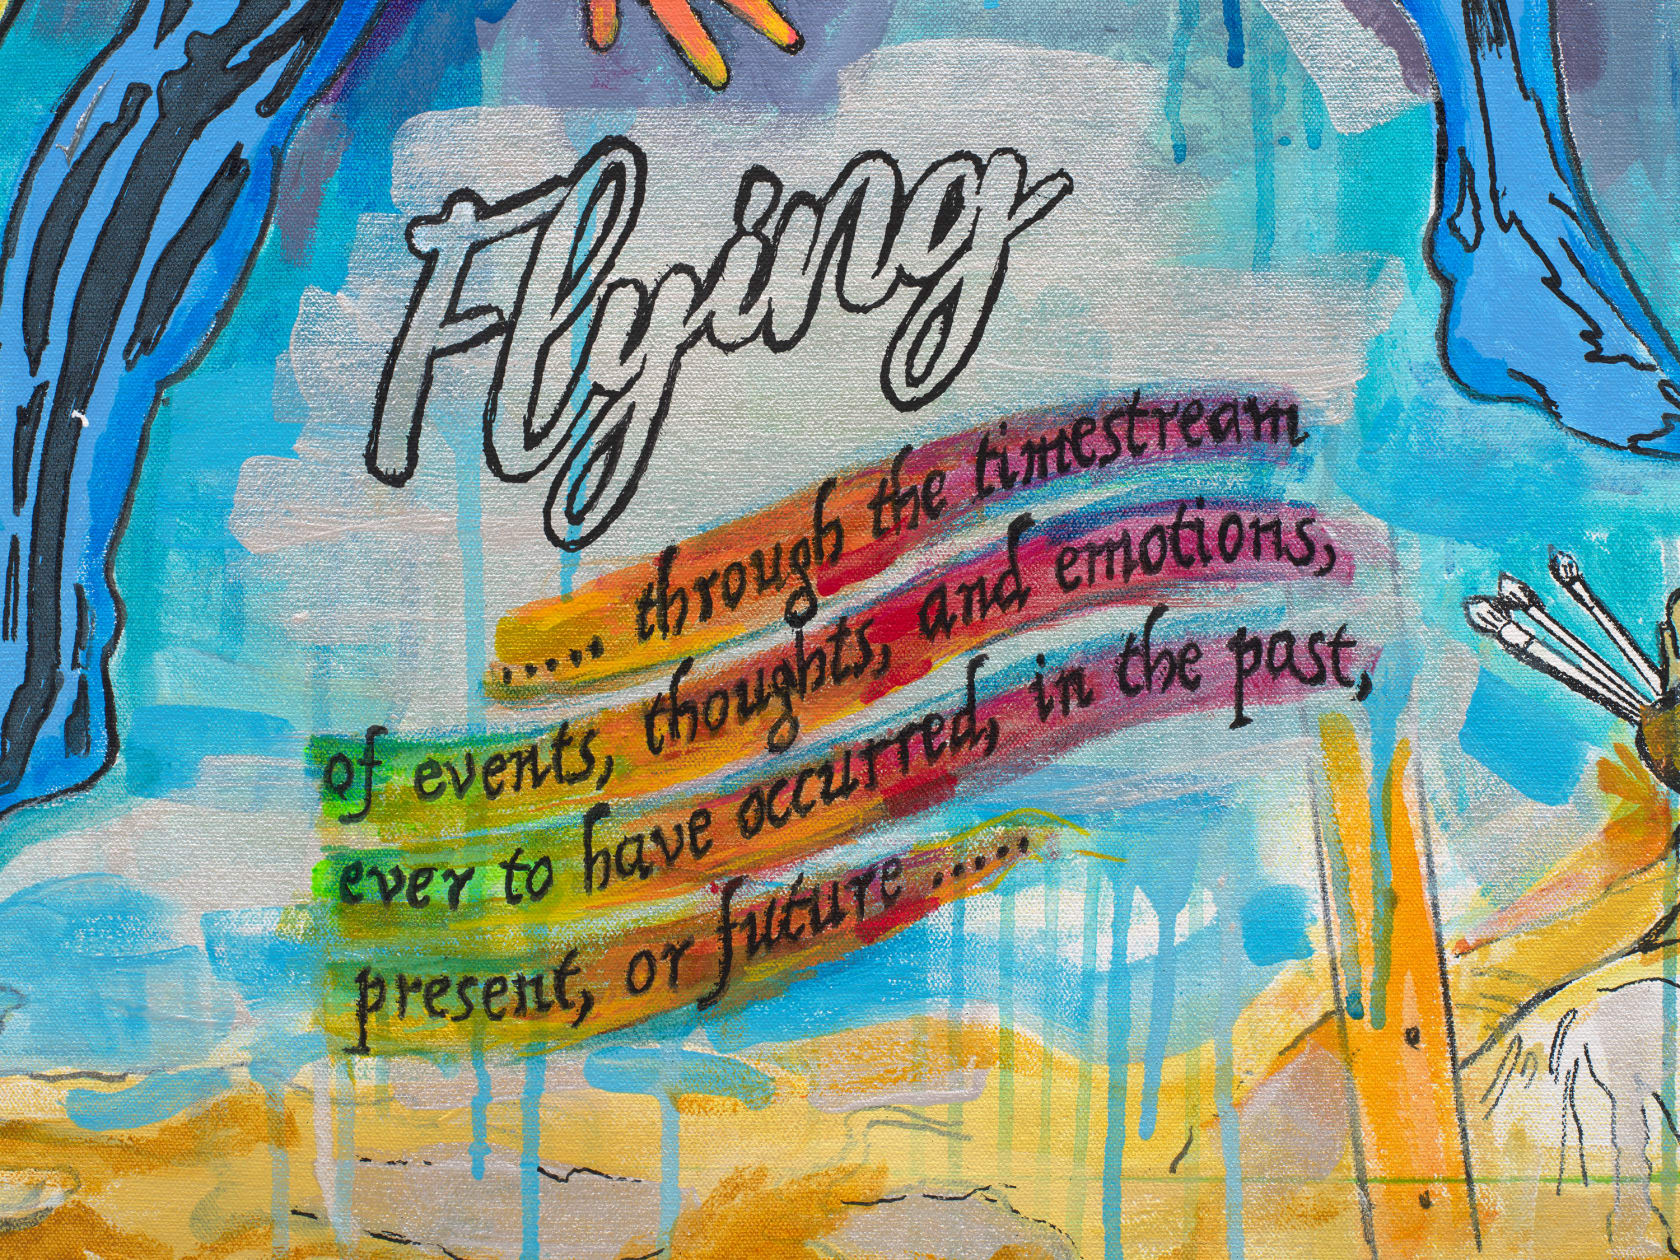 Flying
..... through the timestream
of events, thoughts, and emotions,
ever to have occurred, in the past,
present, or future .....